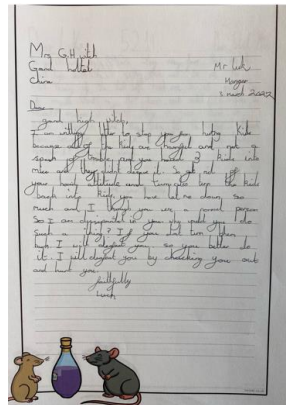 Mrs G.H itch
Grand hotel
China
Mr luck
Manger
1 march 2022
Dear
grand high witch,
I am writing letter to stop you from hating kids
because all of the kids are and not a
speck of and you turned 3 kids into
mice and they didnt deserve it. So get rid of
your attitude and turn the kids
back into kids you have let me down so
much and I thought you were a normal person
So I am disappointed in you why would you do
Such a thing? If you dont turn them
back I will you so you better do
it. I will you by checking you out
and you
faithfully
Luck